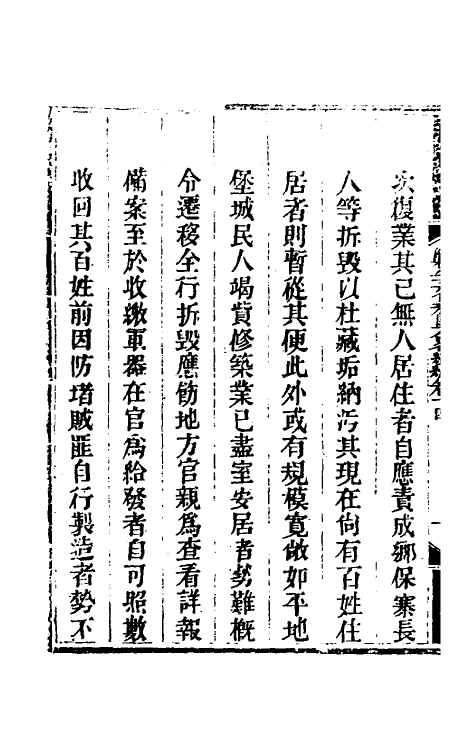 次復業其已無人居住者自應責成鄉保寨長
人等拆毀以杜藏垢納污其現在尙有百姓住
居者則暫從其便此外或有規模寬敞如平地
堡城民人竭貲修築業已盡室安居者勢難概
令遷移全行拆毀應飭地方官親爲查看詳報
備案至於收繳軍器在官爲給發者自可照數
收回其百姓前因防堵賊匪自行製造者勢不